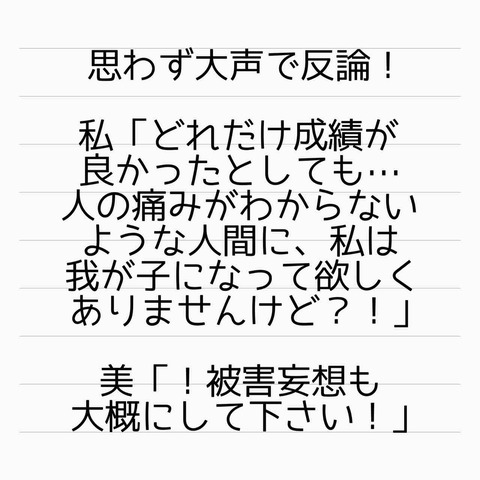 思わず大声で反論！
私「どれだけ成績が
良かったとしても…
人の痛みがわからない
ような人間に、私は
我が子になって欲しく
ありませんけど？！」
美「！被害妄想も
大概にして下さい！」